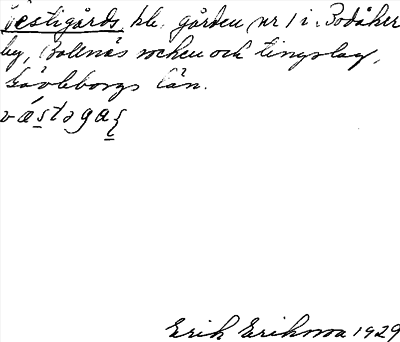 Västigårds, ble. gården nr 1 i Bodåker
by, Bollnäs socken och tingslag,
Gävleborgs län.
væ´stəgaş
Erik Eriksson 1929